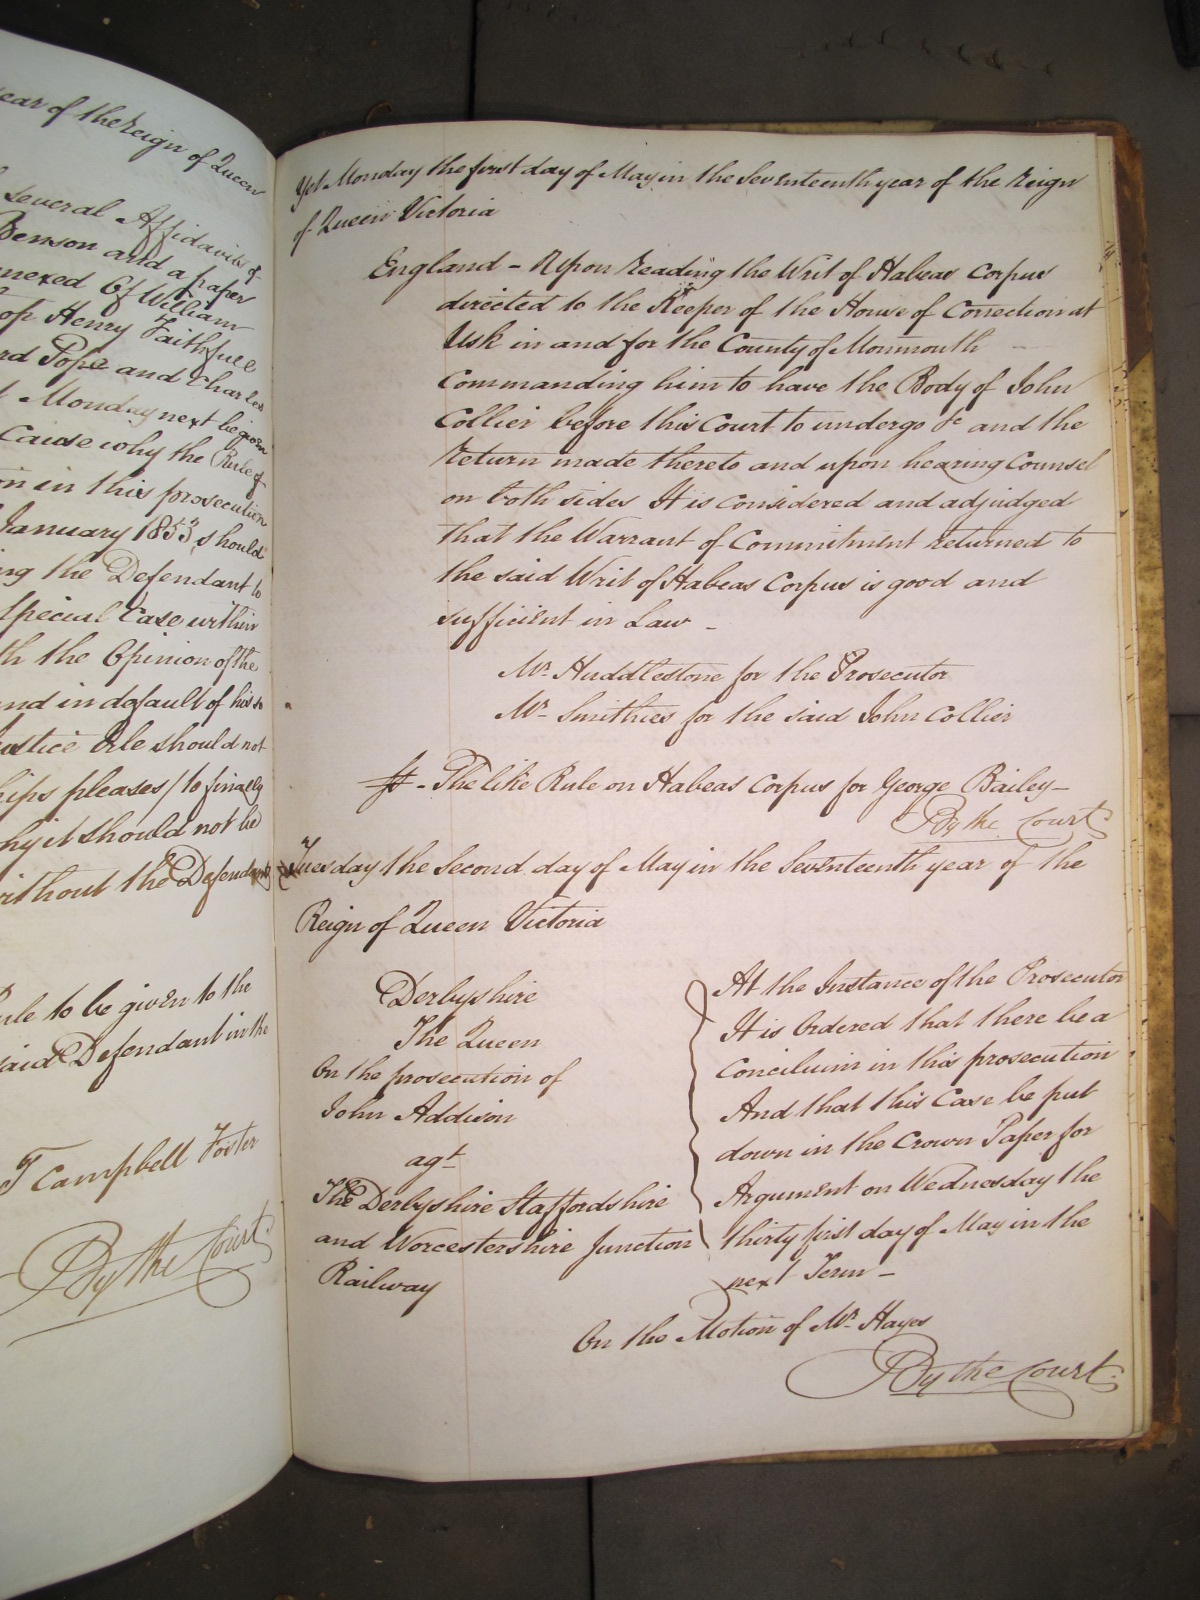 ear of the Reign of Queen
several Affidavits of
Benson and a paper
nexed Of William
op Henry Faithfull
rd Pope and Charles
Monday next be given
cause why the Rule of
on in this prosecution
January 1853 should
ng the Defendant to
Special Case within
th the Opinion of the
nd in default of his so
ustice Erle should not
hips pleases/ to finally
hy it should not be
without the Defendants
ule to be given to the
said Defendant in the
T Campbell Foster
By the Court
Yet Monday the first day of May in the Seventeenth year of the Reign
of Queen Victoria
England - Upon reading the Writ of Habeas Corpus
directed to the Keeper of the House of Correction at
Usk in and for the County of Monmouth
Commanding him to have the Body of John
Collier before this Court to undergo &c and the
Return made thereto and upon hearing Counsel
on both sides It is considered and adjudged
that the Warrant of Commitment returned to
the said Writ of Habeas Corpus is good and
sufficient in Law -
Mr. Huddlestone for the Prosecutor
Mr. Smithies for the said John Collier
- The like Rule on Habeas Corpus for George Bailey -
By the Court
Tuesday the Second day of May in the Seventeenth year of the
Reign of Queen Victoria
Derbyshire
The Queen
On the prosecution of
John Addison
agt
The Derbyshire Staffordshire
and Worcestershire Junction
Railway
At the Instance of the Prosecutor
It is Ordered that there be a
Concilium in this prosecution
And that this Case be put
down in the Crown Paper for
Argument on Wednesday the
thirty first day of May in the
next Term -
On the Motion of Mr. Hayes
By the Court